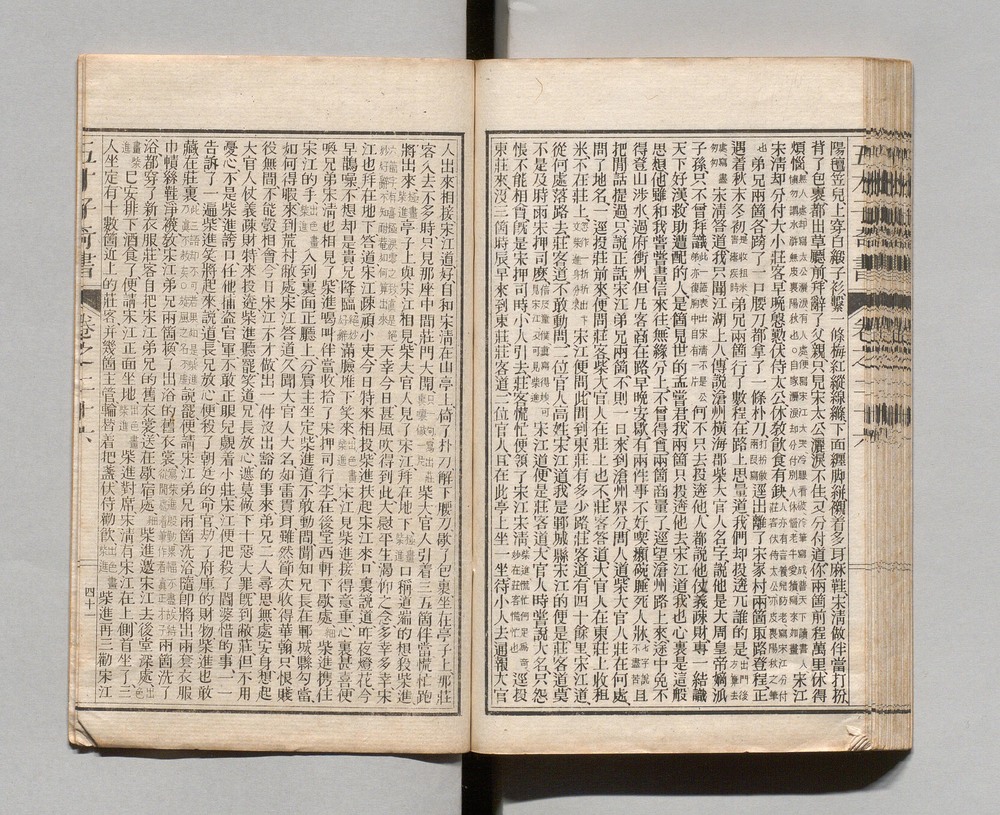 陽氊笠兒上穿白緞子衫繫一條梅紅縱線縧下面纏腳絣襯着多耳麻鞋宋清做伴當打扮
背了包裹都出草廳前拜辭了父親只見宋太公灑淚不住又分付道你兩箇前程萬里休得
煩惱無人處却寫太公灑淚有人處便寫宋江大哭冷眼看破冷筆寫成普天下讀書人慎勿謂水滸無皮裏陽秋也○自家灑淚却分付別人休煩惱老牛愛犢寫來如畫宋江
宋清却分付大小莊客早晚慇懃伏侍太公休教飲食有缺人亦有言養兒防老寫宋江分付莊客伏侍太公皮裏陽秋之筆
也弟兄兩箇各跨了一口腰刀都拿了一條朴刀打扮做兩段寫逕出離了宋家村兩箇取路登程正
遇着秋末冬初是收租米害瘧疾時弟兄兩箇行了數程在路上思量道我們却投透兀誰的是出門後方算去
處寫盡匆匆宋清答道我只聞江湖上人傳說滄州橫海郡柴大官人名字說他是大周皇帝嫡派
子孫只不曾拜識何不只去投透他人都說他仗義疎財專一結識
天下好漢救助遭配的人是箇見世的孟嘗君我兩箇只投透他去宋江道我也心裏是這般
思想他雖和我嘗嘗書信來往無緣分上不曾得會兩箇商量了逕望滄州路上來途中免不
得登山涉水過府衝州但凡客商在路早晚安歇有兩件事不好喫癩碗睡死人牀七字說不盡苦且
把閒話提過只說正話宋江弟兄兩箇不則一日來到滄州界分問人道柴大官人莊在何處
問了地名一逕投莊前來便問莊客柴大官人在莊上也不莊客答道大官人在東莊上收租
米不在莊上宋江便問此間到東莊有多少路莊客道有四十餘里宋江道
從何處落路去莊客道不敢動問二位官人高姓宋江道我是鄆城縣宋江的便是莊客道莫
不是及時雨宋押司麼宋江道便是莊客道大官人時嘗說大名只怨
悵不能相會既是宋押司時小人引去莊客慌忙便領了宋江宋清逕投
東莊來沒三箇時辰早來到東莊莊客道二位官人且在此亭上坐一坐待小人去通報大官
人出來相接宋江道好自和宋清在山亭上倚了朴刀解下腰刀歇了包裹坐在亭子上那莊
客入去不多時只見那座中間莊門大開柴大官人引着三五箇伴當慌忙跑
將出來亭子上與宋江相見柴大官人見了宋江拜在地下口稱道端的想殺柴進
天幸今日甚風吹得到此大慰平生渴仰之念多幸多幸宋
江也拜在地下答道宋江疎頑小吏今日特來相投柴進扶起宋江來口裏說道昨夜燈花今
早鵲噪不想却是貴兄降臨滿臉堆下笑來宋江見柴進接得意重心裏甚喜便
喚兄弟宋清也相見了柴進喝叫伴當收拾了宋押司行李在後堂西軒下歇處柴進攜住
宋江的手入到裏面正廳上分賓主坐定柴進道不敢動問聞知兄長在鄆城縣勾當
如何得暇來到荒村敝處宋江答道久聞大官人大名如雷貫耳雖然節次收得華翰只恨賤
役無閒不能彀相會今日宋江不才做出一件沒出豁的事來弟兄二人尋思無處安身想起
大官人仗義疎財特來投透柴進聽罷笑道兄長放心遮莫做下十惡大罪既到敝莊但不用
憂心不是柴進誇口任他捕盜官軍不敢正眼兒覷着小莊宋江便把殺了閻婆惜的事一一
告訴了一遍柴進笑將起來說道兄長放心便殺了朝廷的命官刼了府庫的財物柴進也敢
藏在莊裏說罷便請宋江弟兄兩箇洗浴隨即將出兩套衣服
巾幘絲鞋淨襪教宋江弟兄兩箇換了出浴的舊衣裳兩箇洗了
浴都穿了新衣服莊客自把宋江弟兄的舊衣裳送在歇宿處柴進邀宋江去後堂深處出色
畫柴進已安排下酒食了便請宋江正面坐地柴進對席宋清有宋江在上側首坐了三
人坐定有十數箇近上的莊客并幾箇主管輪替着把盞伏侍勸飲出色畫柴進柴進再三勸宋江
五才子奇書
卷之二十六
四十一